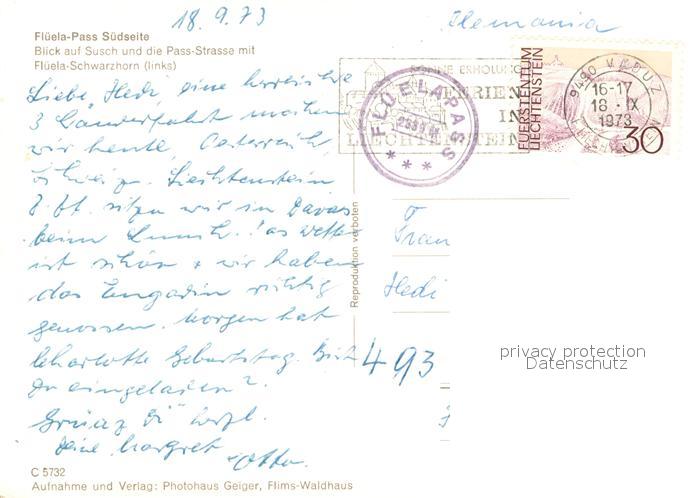 18.9.73
Alemania
Flüela-Pass Südseite
Blick auf Susch und die Pass-Strasse mit
Flüela-Schwarzhorn (links)
Liebe Hedi, eine herrliche
3 Länderfahrt machen
wir heute, Oesterreich,
Schweiz, Liechtenstein
z. Zt. sitzen wir in Davos
beim Lunch. Das Wetter
ist schön + wir haben
das Engadin richtig
genossen. Morgen hat
Charlotte Geburtstag. Bist
Du eingeladen?
herzl.
Deine Margret
Otto.
SCHÖNE ERHOLUNG
FERIEN
IN
LIECHTENSTEIN
FLÜELAPASS
FUERSTENTUM
LIECHTENSTEIN
30
9490 VADUZ
16-17
18.IX
1973
Reproduktion verboten
Frau
Hedi
493
privacy protection
Datenschutz
C 5732
Aufnahme und Verlag: Photohaus Geiger, Flims-Waldhaus